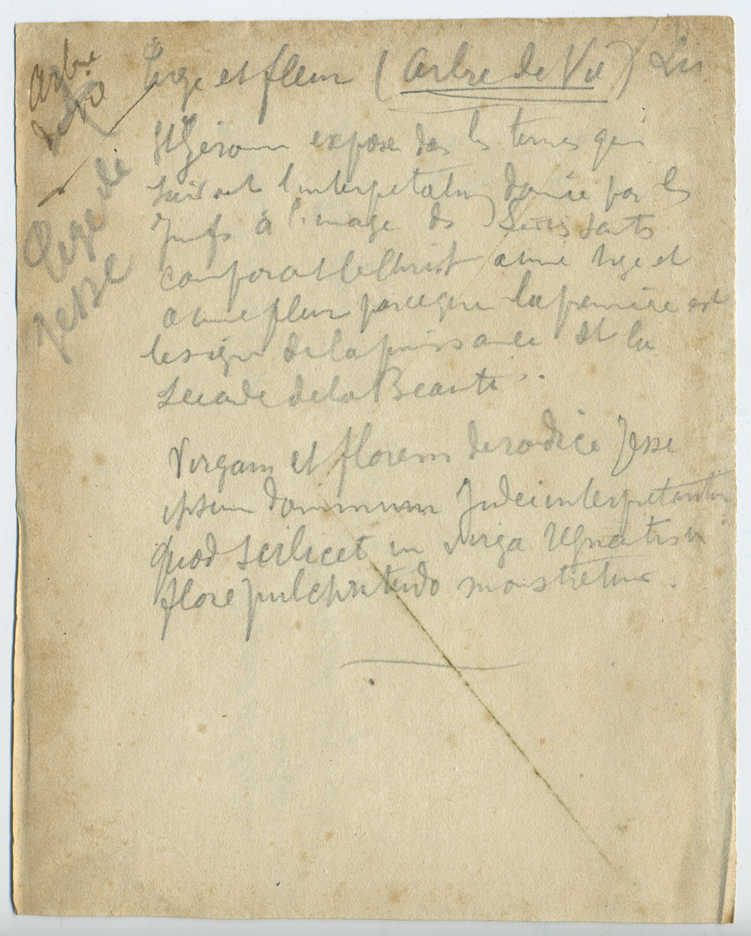 Arbre
de Vie
Tige de
Jesse
Tige et fleur (Arbre de Vie)
St Gérom expose dans les termes qui
suivent l'interpretation donnée par les
Juifs à l'image de
comparant le Christ a une tige et
a une fleur parceque la premiere est
le signe de la puissance et la
seconde de la Beauté.
Virgam et florem de radice Jesse
ipsum dominum Judei interpretantur
quod scilicet in virga regnantis in
flore pulchritudo monstretur.